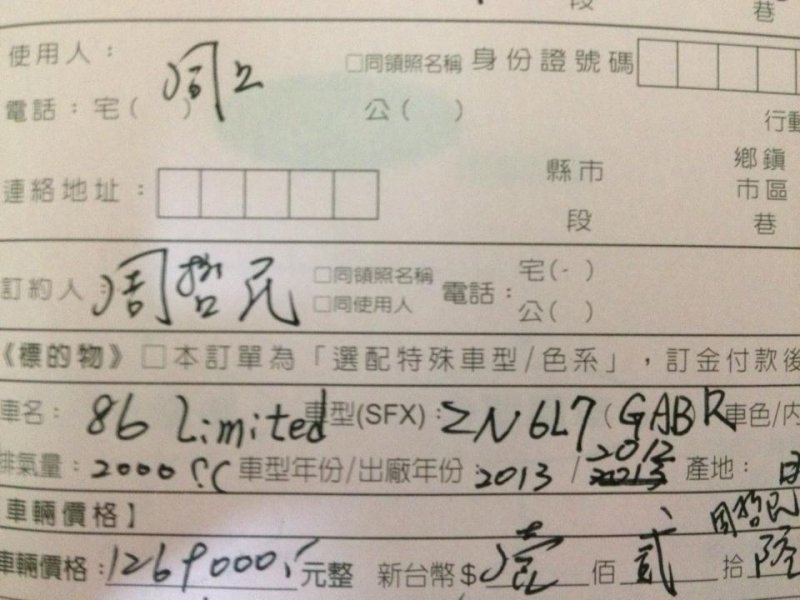 段 巷
使用人： 周 □同領照名稱 身份證號碼
電話：宅( ) 公( ) 行動
連絡地址： 縣市 鄉鎮市區
段 巷
訂約人： 周哲民 □同領照名稱 □同使用人 電話： 宅(-) 公( )
《標的物》□本訂單為「選配特殊車型/色系」，訂金付款後
車名： 86 Limited 車型(SFX)：ZN6L7 (GABR 車色/內
排氣量：2000 CC 車型年份/出廠年份：2013 / 2012 2013 產地： 日
車輛價格】 周哲民
車輛價格：1269000 元整 新台幣$ 壹 佰 貳 拾 陸